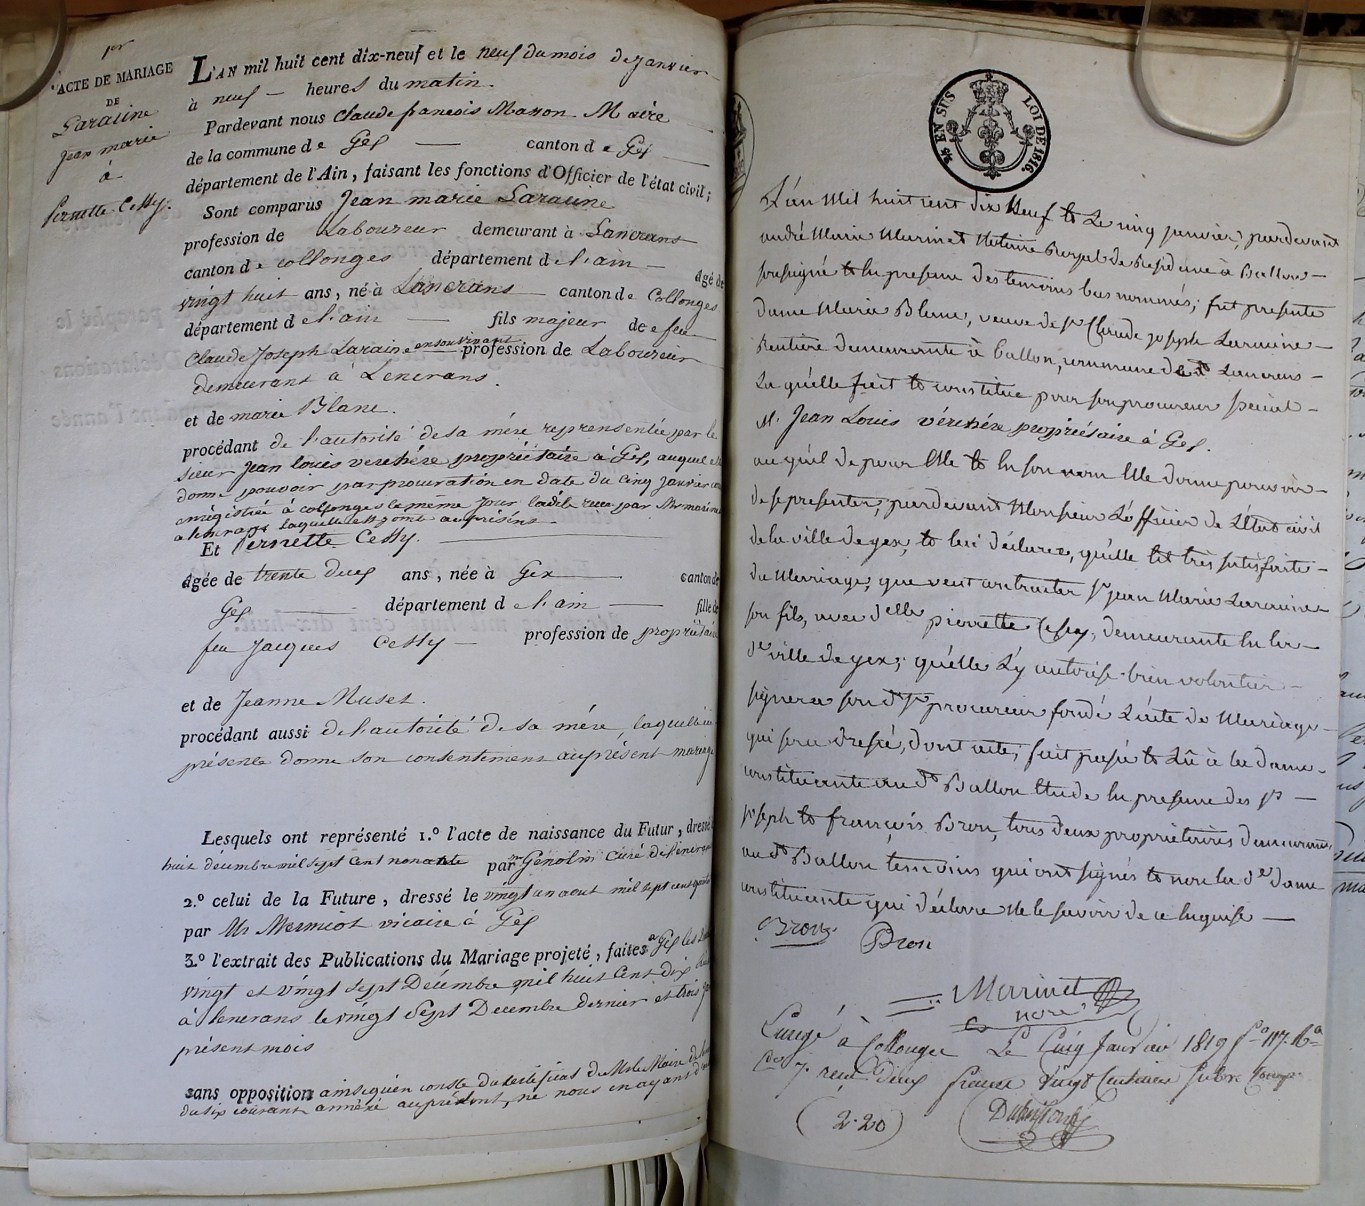 1er
ACTE DE MARIAGE
DE
Laraine
Jean marie
à
Pernette Cetty.
L'AN mil huit cent dix-neuf et le neuf du mois de janvier
à neuf — heures du matin.
Pardevant nous Claude francois Masson Maire
de la commune de Gex — canton de Gex
département de l'Ain, faisant les fonctions d'Officier de l'état civil ;
Sont comparus Jean marie Laraine
profession de Laboureur demeurant à Lancrans
canton de collonges département de l'ain — agé de
vingt huit ans, né à Lancrans canton de Collonges
département de l'ain — fils majeur de feu
Claude Joseph Laraine en son vivant profession de Laboureur
demeurant à Lencrans.
et de marie Blanc.
procédant de l'autorité de sa mére représentée par le
sieur Jean louis verchére propriétaire à Gex, auquel
donne pouvoir par procuration en date du cinq janvier
enrégistrée à collonges le même jour par Mr
laquelle est jointe au présent
Et Pernette Cetty.
agée de trente deux ans, née à Gex canton de
Gex — département de l'ain — fille de
feu Jacques Cetty — profession de propriétaire
et de Jeanne Muset.
procédant aussi de l'autorité de sa mére, laquelle ici
présente donne son consentement au présent mariage
Lesquels ont représenté 1.º l'acte de naissance du Futur, dressé
huit décembre mil sept cent nonante par mr Genolin curé de Lencrans
2.º celui de la Future, dressé le vingt un aout mil sept cent
par Mr Mermiot vicaire à Gex
3.º l'extrait des Publications du Mariage projeté, faites a Gex les
vingt et vingt sept Décembre mil huit Cent dix huit
à lencrans le vingt Sept Decembre dernier et trois
présent mois
sans opposition ainsi qu'en conste du certificat de Mr le Maire de
du six courant annéxé au présent, ne nous en ayant
¼ EN SUS LOI DE 1816.
L'an Mil huit cent dix Neuf & Le cinq janvier, pardevant
andré Marie Marinet Notaire Royal de Residence à Ballon
soussigné & En presence des temoins bas nommés, fut presente
dame Marie Blanc, veuve de Sr Claude joseph Laraine
Rentière demeurante à ballon, commune de Lancrans
Laquelle fait & constitue pour son procureur special
Mr Jean Louis vérchére propriétaire à Gex.
auquel de pour Elle & En son nom Elle donne pouvoir
de se presenter, pardevant Monsieur L'officier de L'Etat civil
de la ville de gex, & lui déclarer, qu'elle Est très satisfaite
du Mariage, que veut contracter Sr jean Marie Laraine
son fils, avec delle pierrette Cetty, demeurante En la
de ville de gex ; qu'elle L'y autorise bien volontier
signera son dt Sr procureur fondé L'acte de Mariage
qui sera dressé, dont acte ; fait passé & Lû à la dame
constituante au dt Ballon Etude En presence des Sr
joseph & françois Bron, tous deux propriétaires demeurants
au dt Ballon temoins qui ont signés & non la de dame
constituante qui déclare ne le savoir de ce Enquise
Bron Bron
Marinet
nore
Enregé à Collonges Le Cinq Janvier 1819 fo 117. Ro
Cer 7. reçu deux francs Vingt Centimes Subv. Compr.
(2-20)